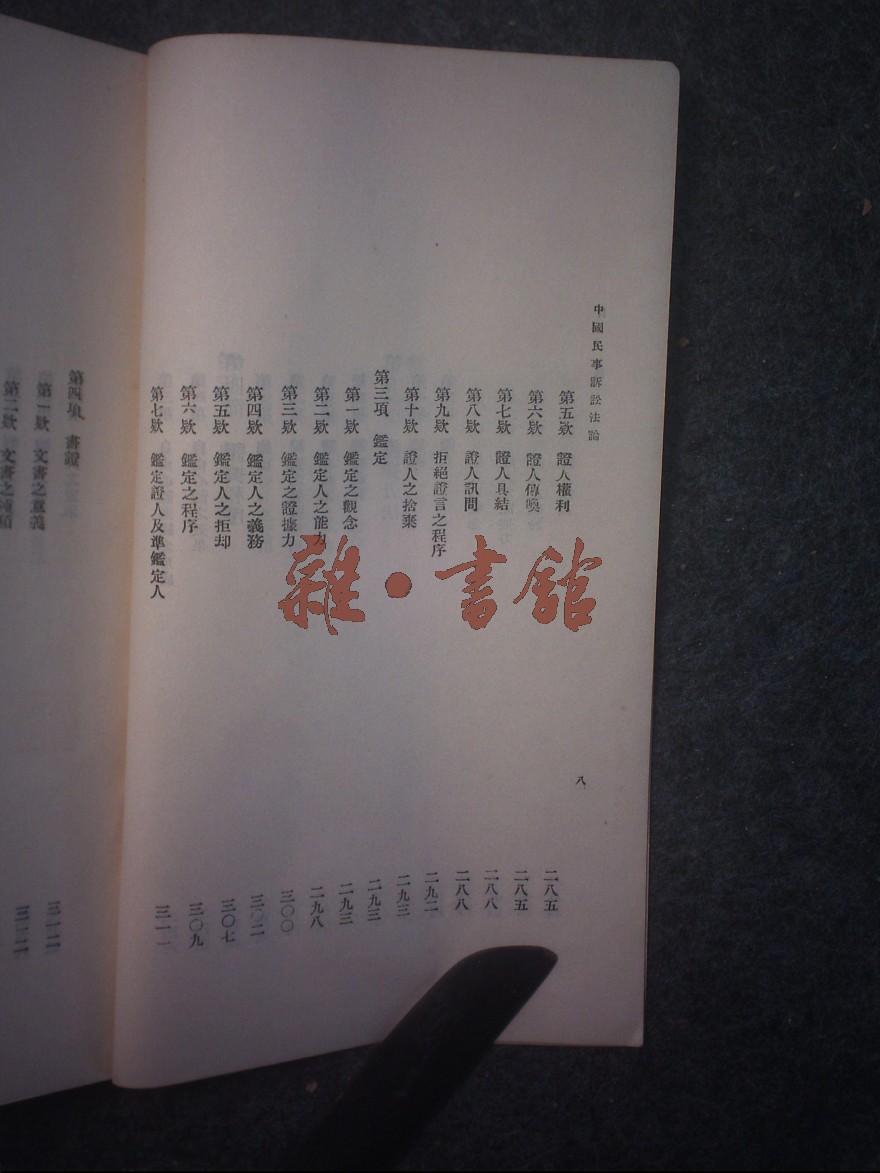 中國民事訴訟法論
八
第五欵 證人權利 二八五
第六欵 證人傳喚 二八五
第七欵 證人具結 二八八
第八欵 證人訊問 二八八
第九欵 拒絕證言之程序 二九二
第十欵 證人之捨棄 二九三
第三項 鑑定 二九三
第一欵 鑑定之觀念 二九三
第二欵 鑑定人之能力 二九八
第三欵 鑑定之證據力 三〇〇
第四欵 鑑定人之義務 三〇二
第五欵 鑑定人之拒却 三〇七
第六欵 鑑定之程序 三〇九
第七欵 鑑定證人及準鑑定人 三一一
第四項 書證
第一欵 文書之意義
第二欵 文書之種類
雜·書館